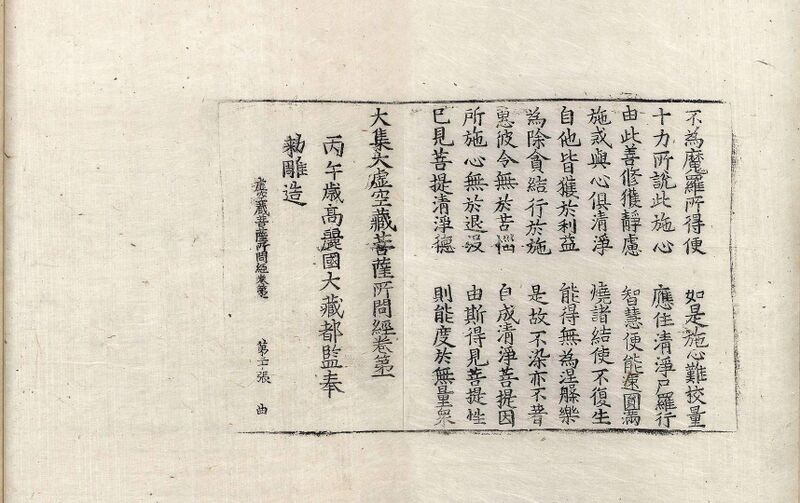 不為魔羅所得便　如是施心難挍量
十力所說此施心　應住清淨尸羅行
由此善修獲靜慮　智慧便能速圓滿
施戒與心俱清淨　燒諸結使不復生
自他皆獲於利益　能得無為涅槃樂
為除貪結行於施　是故不染亦不著
惠彼令無於苦惱　自成清淨菩提因
所施心無於退沒　由斯得見菩提性
已見菩提清淨德　則能度於無量衆
大集大虛空藏菩薩所問經卷第一
丙午歲高麗國大藏都監奉
勑雕造
虛空藏菩薩所問經卷第　第　張　曲